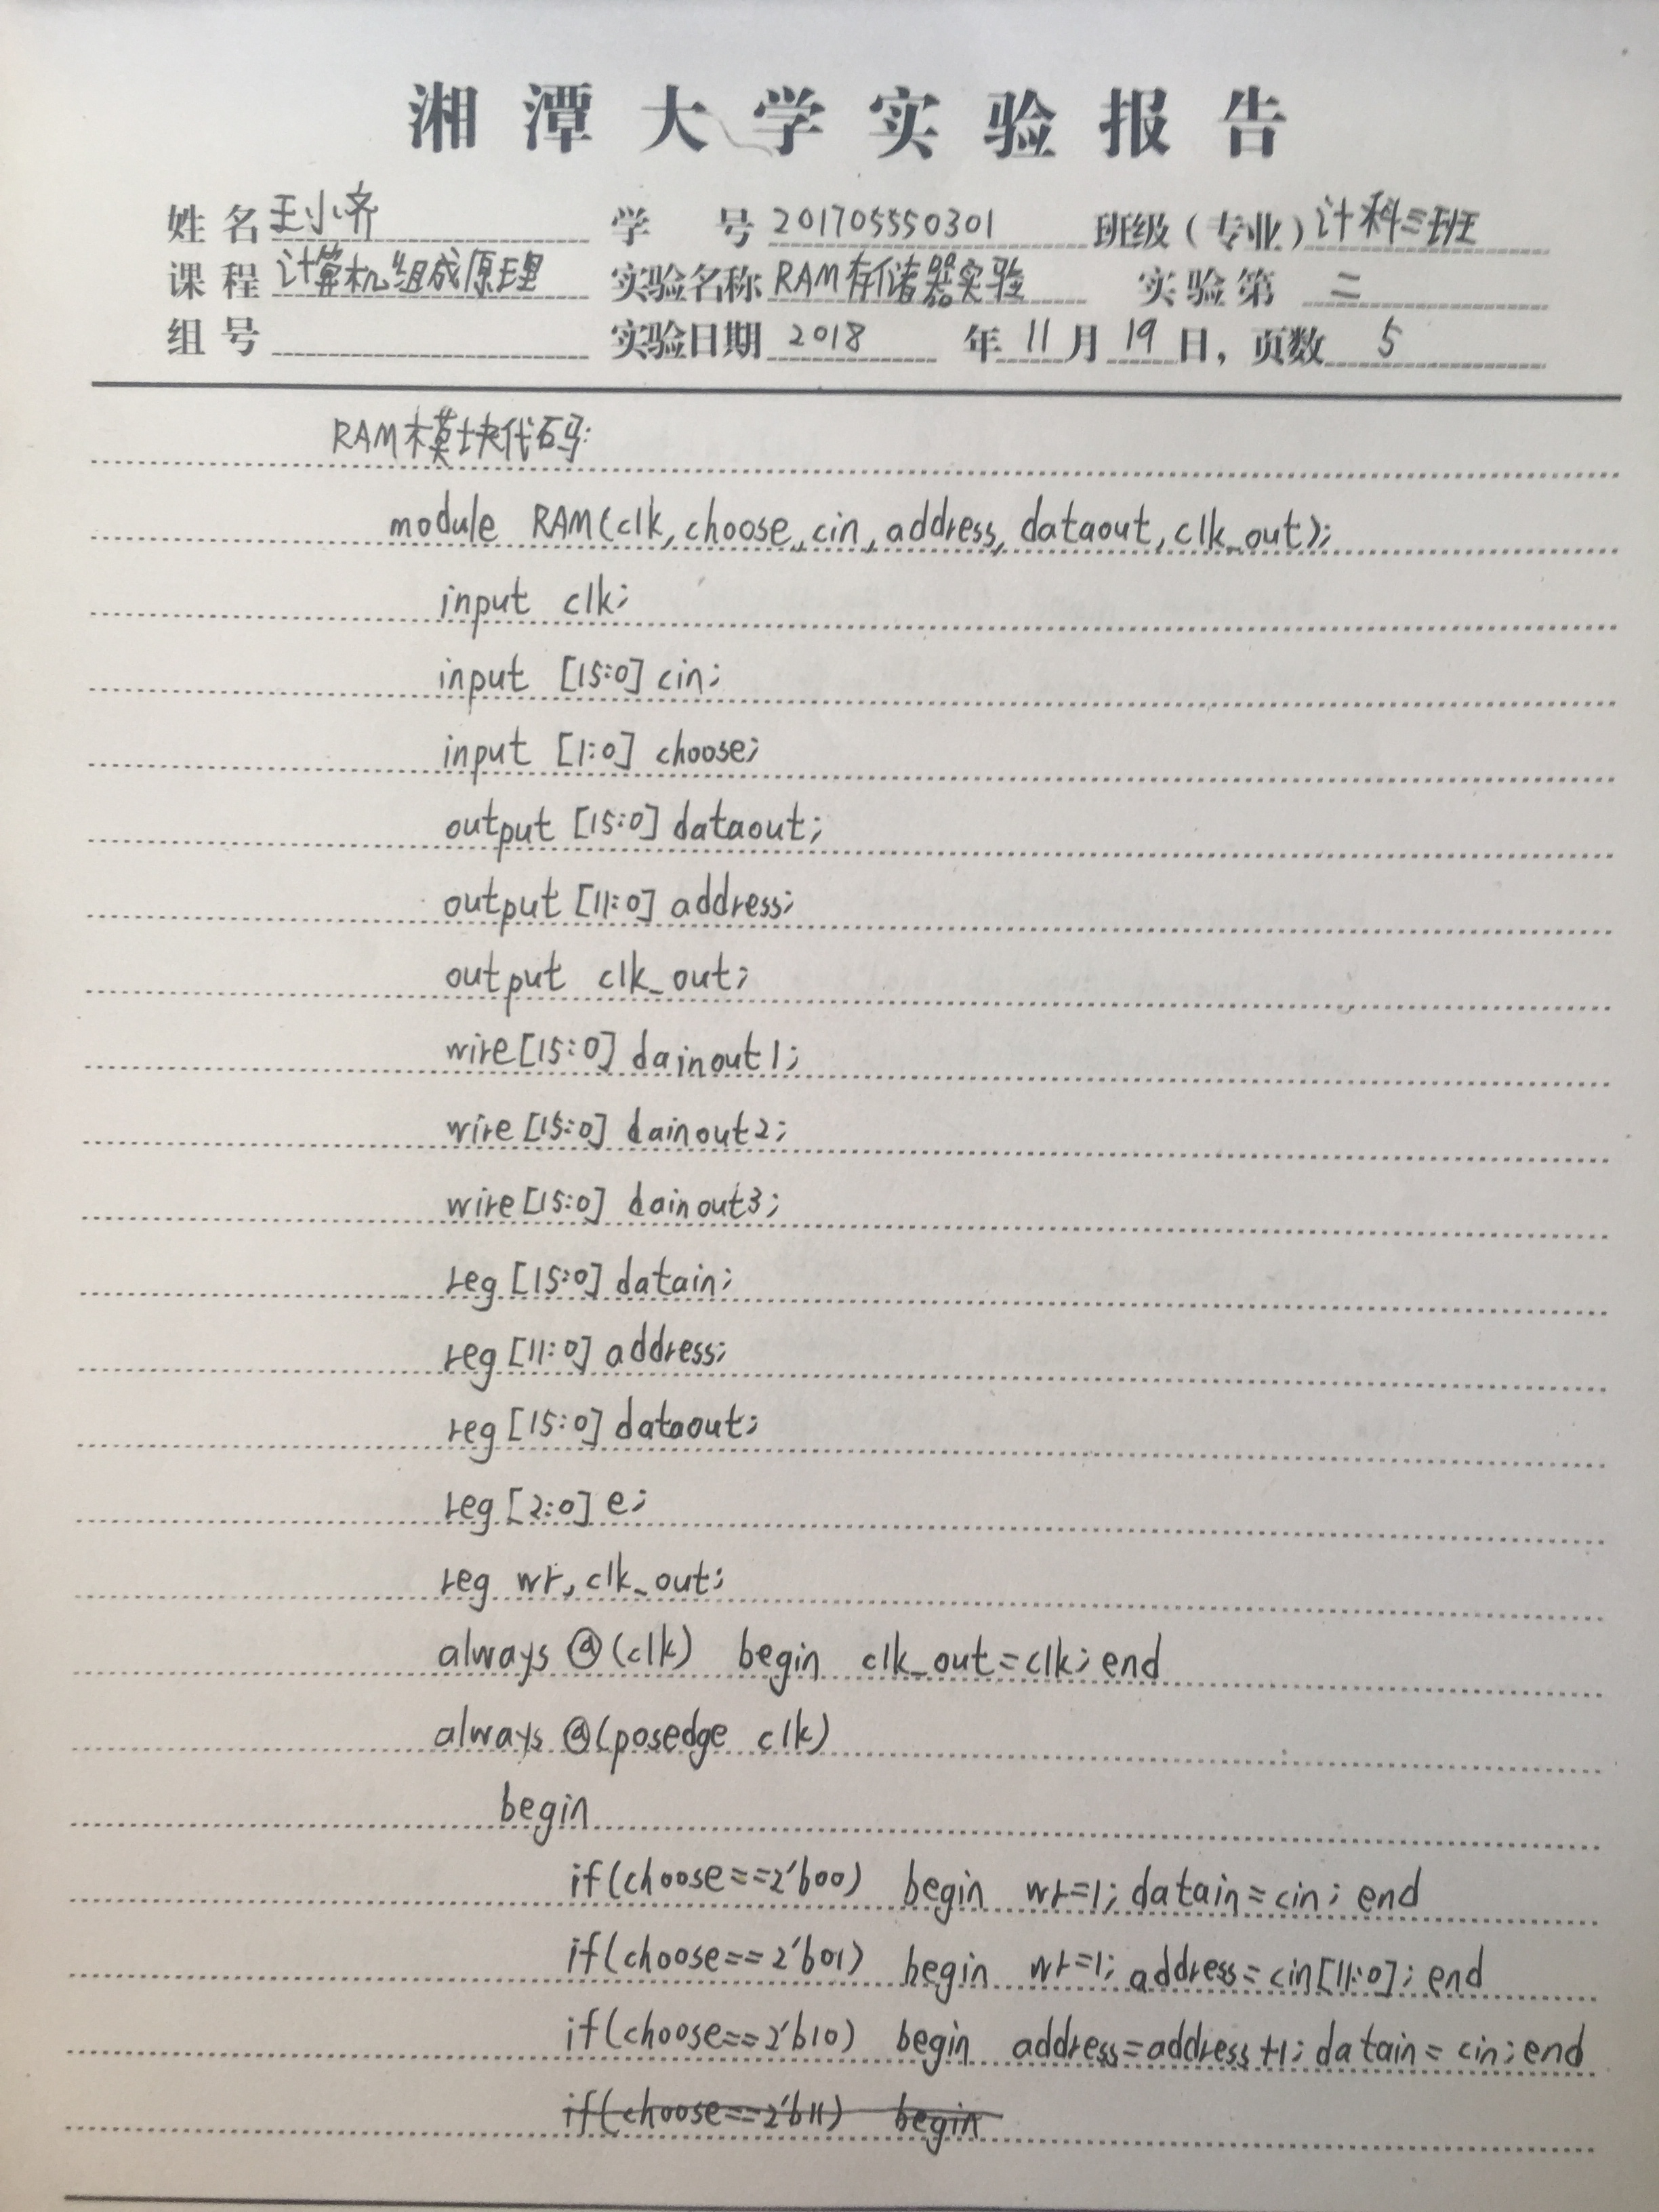 湘潭大学实验报告
姓名 王小济 学号 201705550301 班级（专业）计科三班
课程 计算机组成原理 实验名称 RAM存储器实验 实验第 二
组号 实验日期 2018 年 11 月 19 日，页数 5
RAM模块代码:
module RAM(clk,choose,cin,address,dataout,clk_out);
input clk;
input [15:0] cin;
input [1:0] choose;
output [15:0] dataout;
output [11:0] address;
output clk_out;
wire [15:0] dainout1;
wire [15:0] dainout2;
wire [15:0] dainout3;
reg [15:0] datain;
reg [11:0] address;
reg [15:0] dataout;
reg [2:0] e;
reg wr,clk_out;
always @(clk) begin clk_out=clk; end
always @(posedge clk)
begin
if(choose==2'b00) begin wr=1; datain=cin; end
if(choose==2'b01) begin wr=1; address=cin[11:0]; end
if(choose==2'b10) begin address=address+1; datain=cin; end
if(choose==2'b11) begin